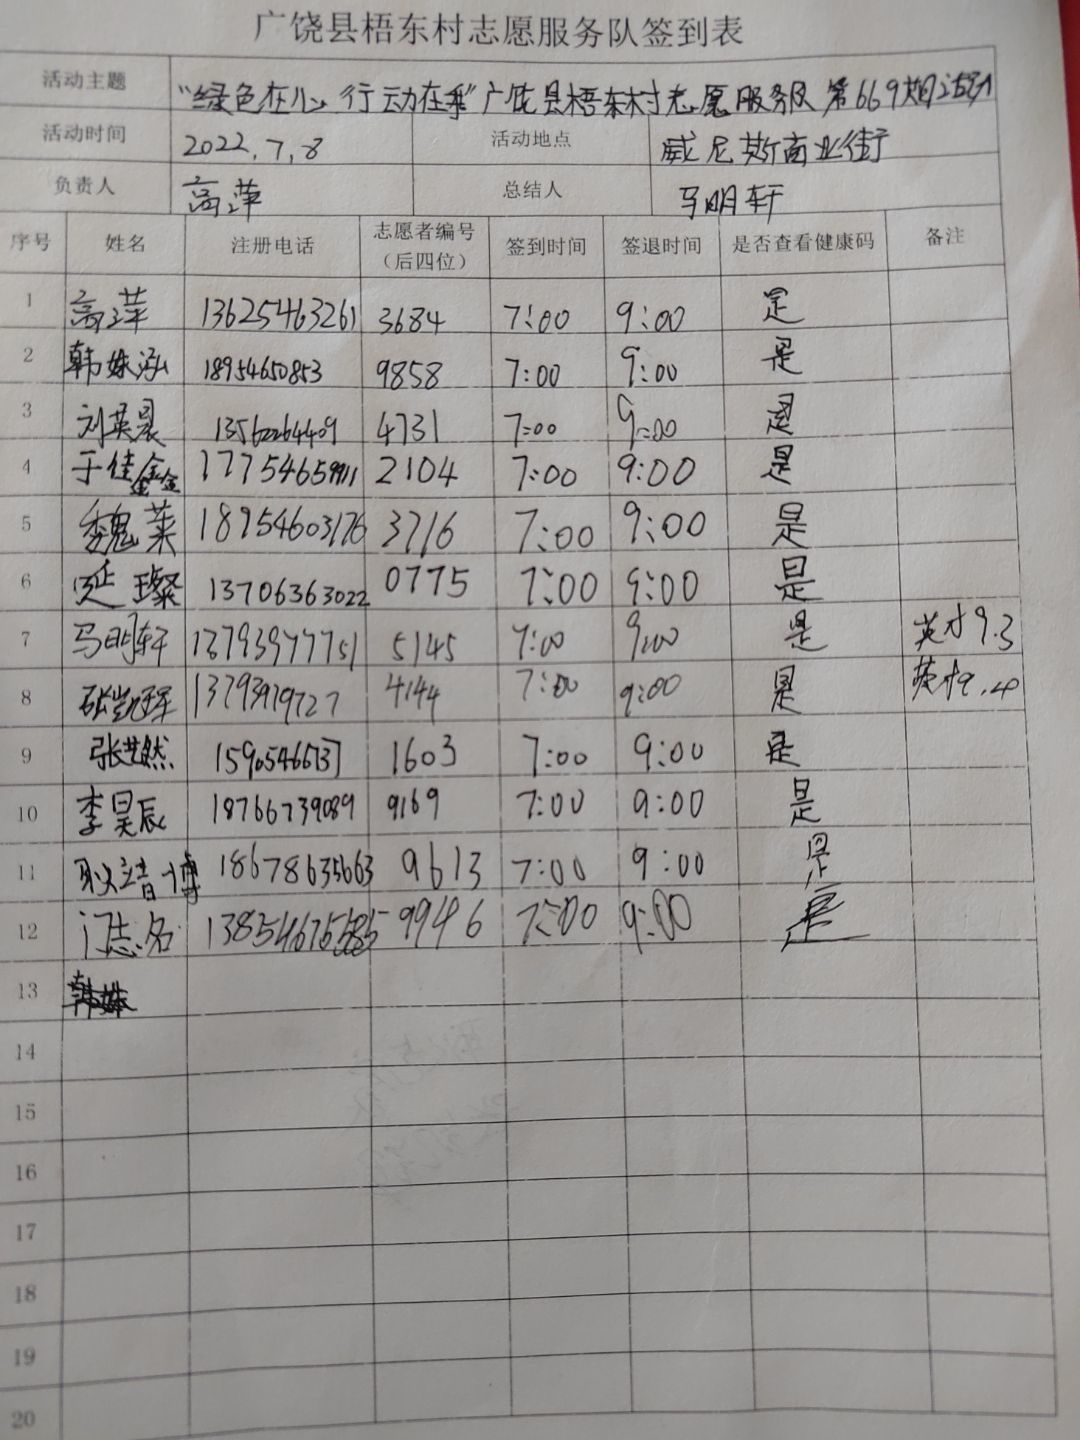 广饶县梧东村志愿服务队签到表
活动主题 “绿色在心 行动在我”广饶县梧东村志愿服务队第669期活动
活动时间 2022.7.8 活动地点 威尼斯商业街
负责人 高萍 总结人 马明轩
序号 姓名 注册电话 志愿者编号（后四位） 签到时间 签退时间 是否查看健康码 备注
1 高萍 13625463261 3684 7:00 9:00 是
2 韩姝泓 18954650853 9858 7:00 9:00 是
3 刘英晨 13562264409 4731 7:00 9:00 是
4 于佳鑫 17754659911 2104 7:00 9:00 是
5 魏莱 18954603176 3716 7:00 9:00 是
6 延璨 13706363022 0775 7:00 9:00 是
7 马明轩 13793977751 5145 7:00 9:00 是 英才9.3
8 张凯珲 13793919727 4144 7:00 9:00 是 英才9.4
9 张艺然 1603 7:00 9:00 是
10 李昊辰 18766739089 9169 7:00 9:00 是
11 耿靖博 18678635663 9613 7:00 9:00 是
12 门志名 9946 7:00 9:00 是
13
14
15
16
17
18
19
20